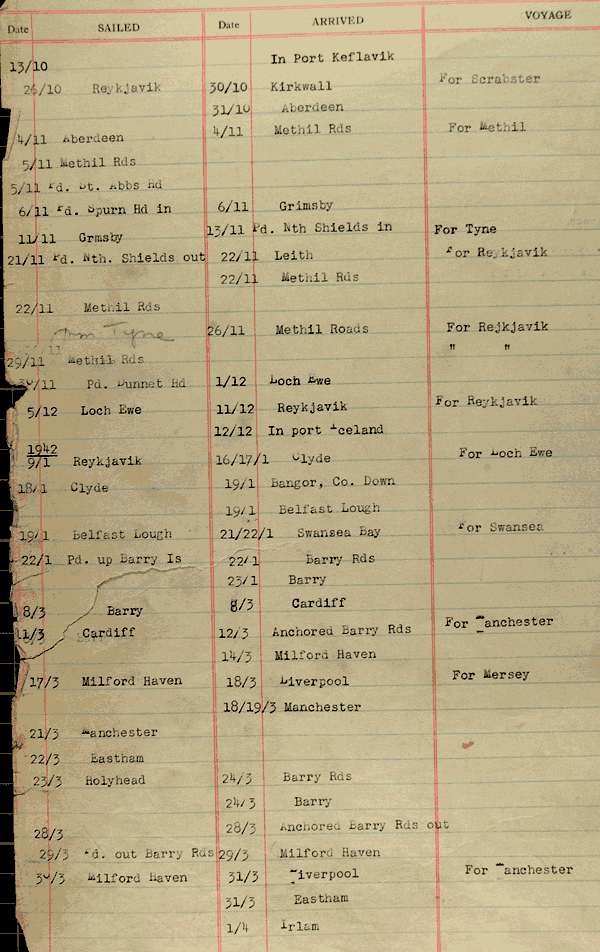 Date SAILED Date ARRIVED VOYAGE
13/10 In Port Keflavik
26/10 Reykjavik 30/10 Kirkwall For Scrabster
31/10 Aberdeen
4/11 Aberdeen 4/11 Methil Rds For Methil
5/11 Methil Rds
5/11 Pd. St. Abbs Hd
6/11 Pd. Spurn Hd in 6/11 Grimsby
11/11 Grmsby 13/11 Pd. Nth Shields in For Tyne
21/11 Pd. Nth. Shields out 22/11 Leith For Reykjavik
22/11 Methil Rds
22/11 Methil Rds
Tyne 26/11 Methil Roads For Rejkjavik
" "
29/11 Methil Rds
30/11 Pd. Dunnet Hd 1/12 Loch Ewe
5/12 Loch Ewe 11/12 Reykjavik For Reykjavik
12/12 In port Iceland
1942
9/1 Reykjavik 16/17/1 Clyde For Loch Ewe
18/1 Clyde 19/1 Bangor, Co. Down
19/1 Belfast Lough
19/1 Belfast Lough 21/22/1 Swansea Bay For Swansea
22/1 Pd. up Barry Is 22/1 Barry Rds
23/1 Barry
8/3 Barry 8/3 Cardiff
11/3 Cardiff 12/3 Anchored Barry Rds For Manchester
14/3 Milford Haven
17/3 Milford Haven 18/3 Liverpool For Mersey
18/19/3 Manchester
21/3 Manchester
22/3 Eastham
23/3 Holyhead 24/3 Barry Rds
24/3 Barry
28/3 28/3 Anchored Barry Rds out
29/3 Pd. out Barry Rds 29/3 Milford Haven
30/3 Milford Haven 31/3 Liverpool For Manchester
31/3 Eastham
1/4 Irlam